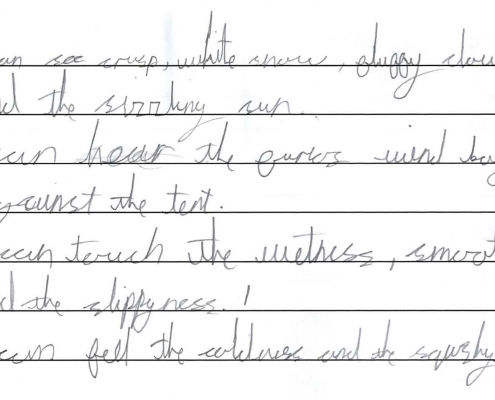 an see crisp, white snow, fluffy clou
d the sizzling sun.
can hear the furios wind
against the tent.
can touch the wetness, smoot
d the slippyness.
can fell the coldness and the squshy